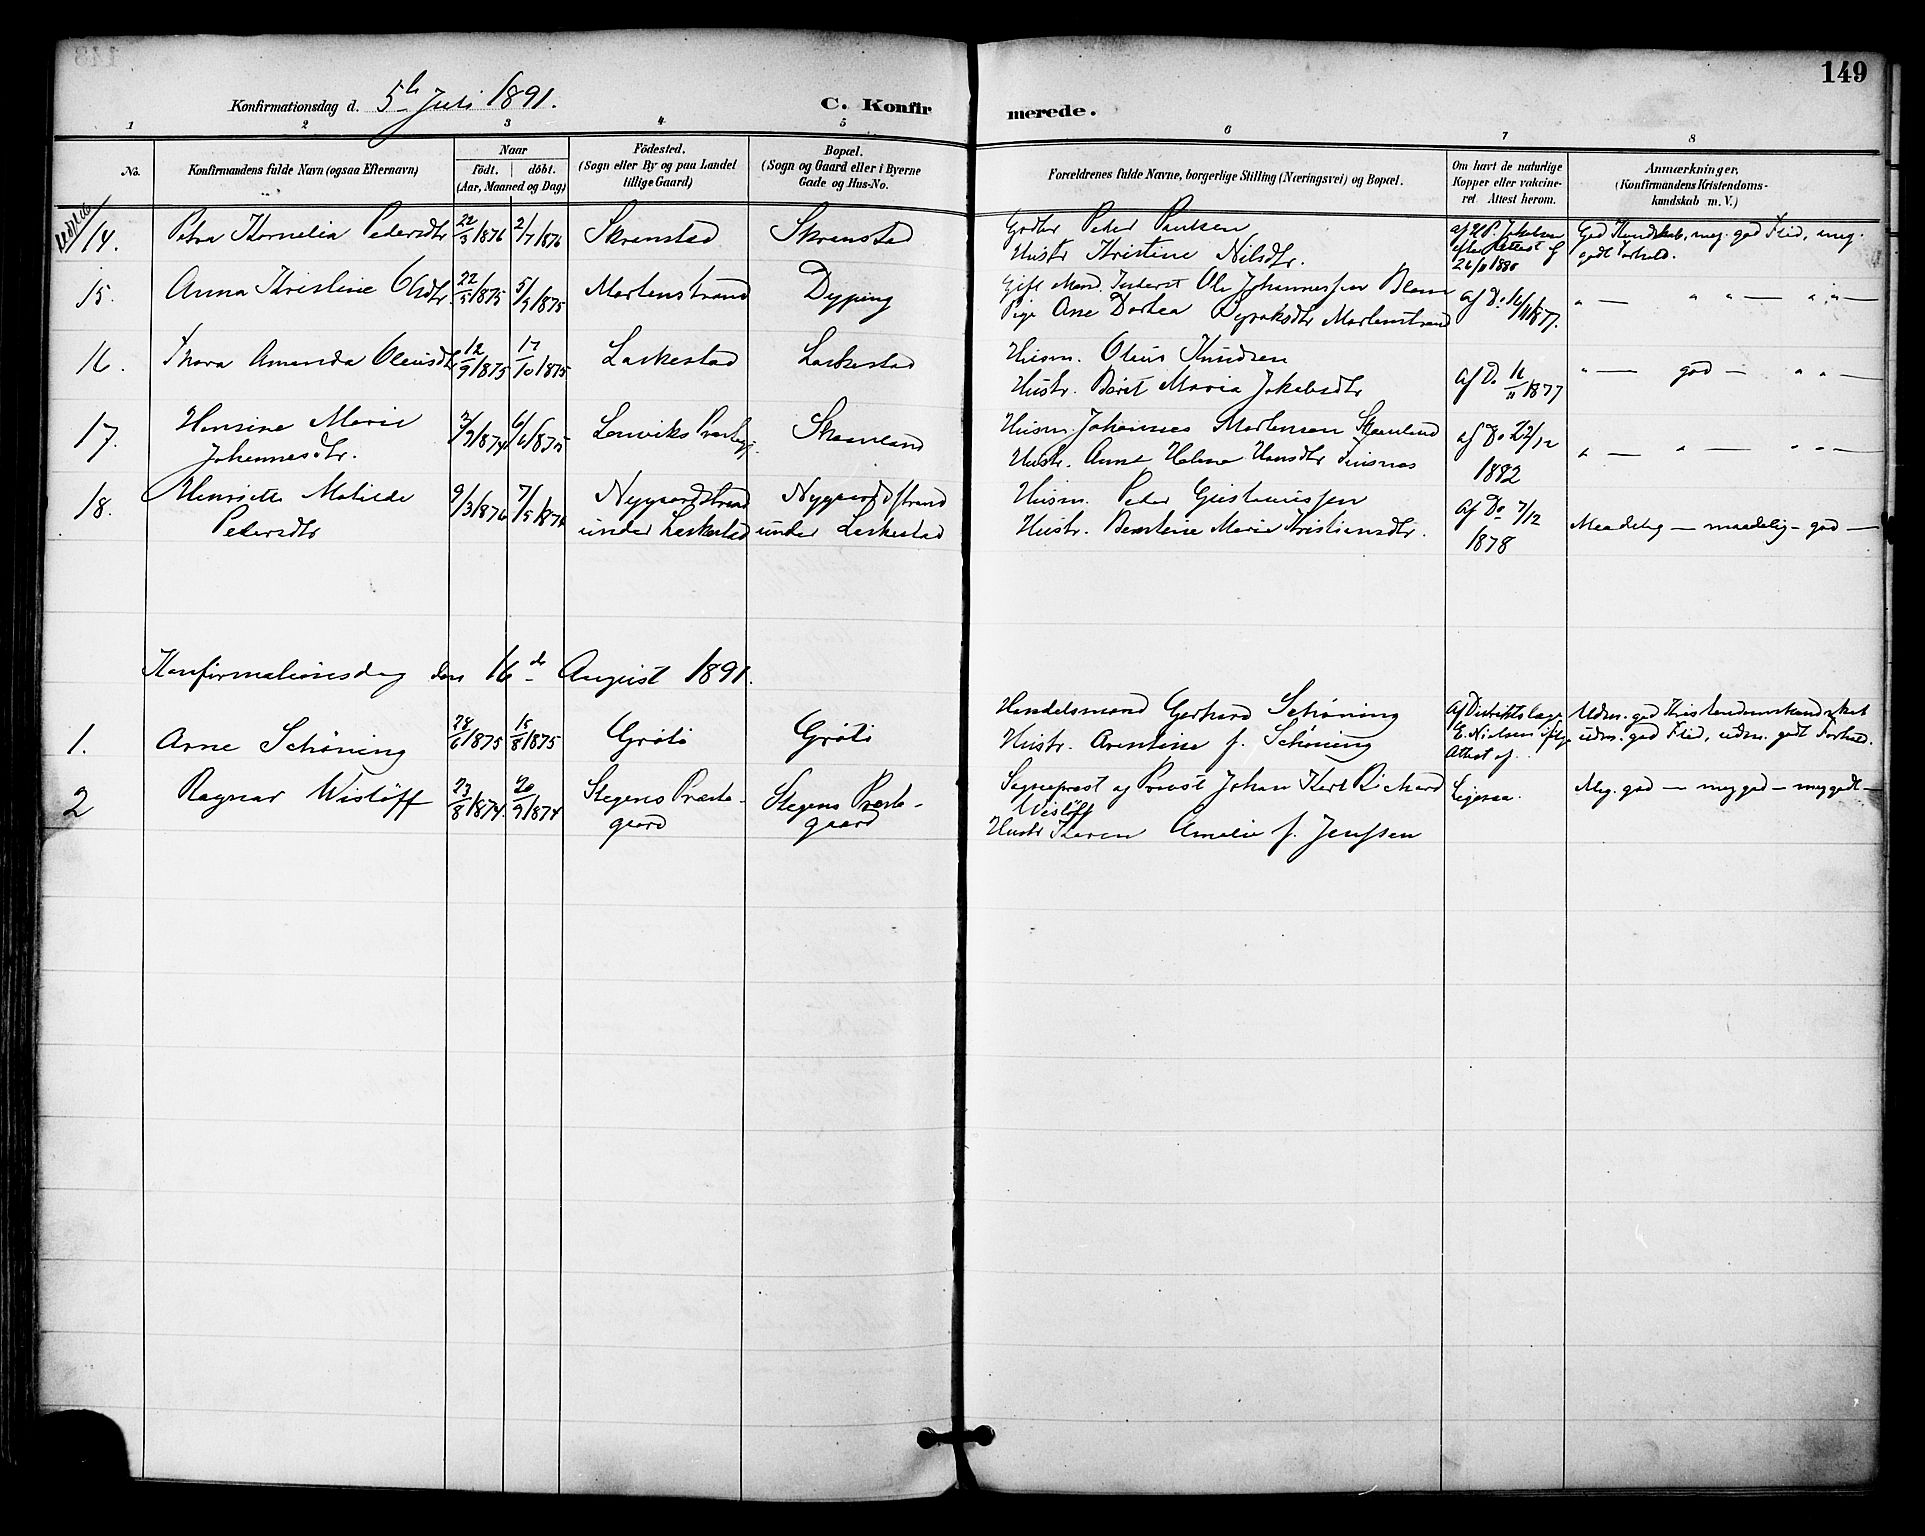 149
Konfirmationsdag d. 5te Juli 1891.
C. Konfirmerede.
1 2 3 4 5 6 7 8
No.
Konfirmandens fulde Navn (ogsaa Efternavn)
Naar
födt. döbt.
(Aar, Maaned og Dag)
Födested.
(Sogn eller By og paa Landet
tillige Gaard)
Bopæl.
(Sogn og Gaard eller i Byerne
Gade og Hus-No.
Forældrenes fulde Navne, borgerlige Stilling (Næringsvei) og Bopæl.
Om havt de naturlige
Kopper eller vakcine-
ret. Attest herom.
Anmærkninger.
(Konfirmandens Kristendoms-
kundskab m. V.)
14. Petra Kornelia Pedersdtr 22/3/1876 2/7/1876 Skranstad Skranstad
Peder Paulsen
Hustr Kristine Nilsdtr.
af P. Jakobsen
efter Attest af
26/11 1880
God Kundskab, meg. god Flid, meg.
godt Forhold.
15. Anna Kristine Olsdtr. 22/5/1875 5/9/1875 Martenstrand Dyping
Gift Mand. Inderst Ole Johannessen
Pige Ane Dortea Martenstrand
af Do 16/11 1877.
" — " " — " " —
16. Thora Amanda Oleusdtr 12/9/1875 17/10/1875 Laskestad Laskestad
Husm. Oleus Knudsen
Hustr. Beret Maria Jakobsdtr
af Do 16/11 1877
" — god — " " —
17. Hansine Marie
Johannesdtr. 6/6/1875 Lenviks Skaanland
Husm. Johannes Mortensen Skaanland
Hustr. Anne Helene Hansdtr
af Do 22/12
1882
" — " — " " —
18. Henriette Matilde
Pedersdtr 9/3/1876 7/5/1876 Nygaardstrand
under Laskestad
Nygaardstrand
under Laskestad
Husm. Peder Gustavussen
Hustr. Berntine Marie Kristiansdtr.
af Do 7/12
1878
Maadelig — maadelig — god —
Konfirmationsdag den 16de August 1891.
1. Arne Schöning 28/6/1875 15/8/1875 Grötö Grötö
Handelsmand Gerhard Schöning
Hustr. Arentine f. Schöning
Af Distriktslæge
E. Nielsen ifölge
Attest af
Udm. god Kristendomskundskab
udm. god Flid, udm. godt Forhold.
2 Ragnar Wislöff 23/8/1874. 20/9/1874 Stegens Præste-
gaard
Stegens Præste-
gaard
Sognepræst og Provst Johan Karl Richard
Wislöff
Hustr Karen Amalie f. Jenssen
Ligesaa.
Meg. god — meg god — meg godt —